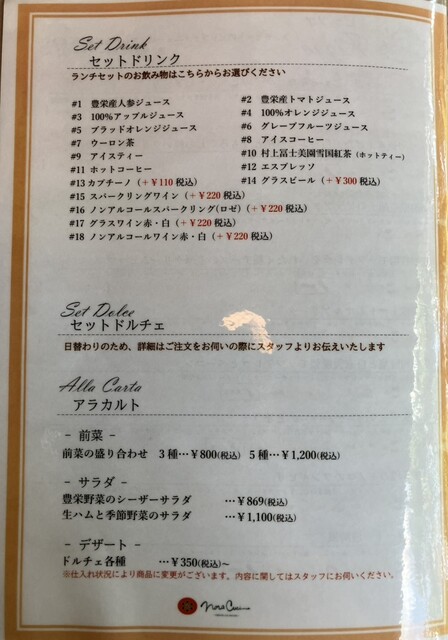 Set Drink
セットドリンク
ランチセットのお飲み物はこちらからお選びください
#1 豊栄産人参ジュース
#2 豊栄産トマトジュース
#3 100%アップルジュース
#4 100%オレンジジュース
#5 ブラッドオレンジジュース
#6 グレープフルーツジュース
#7 ウーロン茶
#8 アイスコーヒー
#9 アイスティー
#10 村上冨士美園雪国紅茶(ホットティー)
#11 ホットコーヒー
#12 エスプレッソ
#13 カプチーノ(+¥110税込)
#14 グラスビール(+¥300税込)
#15 スパークリングワイン(+¥220税込)
#16 ノンアルコールスパークリング(ロゼ)(+¥220税込)
#17 グラスワイン赤・白(+¥220税込)
#18 ノンアルコールワイン赤・白(+¥220税込)
Set Dolce
セットドルチェ
日替わりのため、詳細はご注文をお伺いの際にスタッフよりお伝えいたします
Alla Carta
アラカルト
- 前菜 -
前菜の盛り合わせ 3種…¥800(税込) 5種…¥1,200(税込)
- サラダ -
豊栄野菜のシーザーサラダ …¥869(税込)
生ハムと季節野菜のサラダ …¥1,100(税込)
- デザート -
ドルチェ各種 …¥350(税込)~
※仕入れ状況により商品に変更がございます。内容に関してはスタッフにお伺いください。